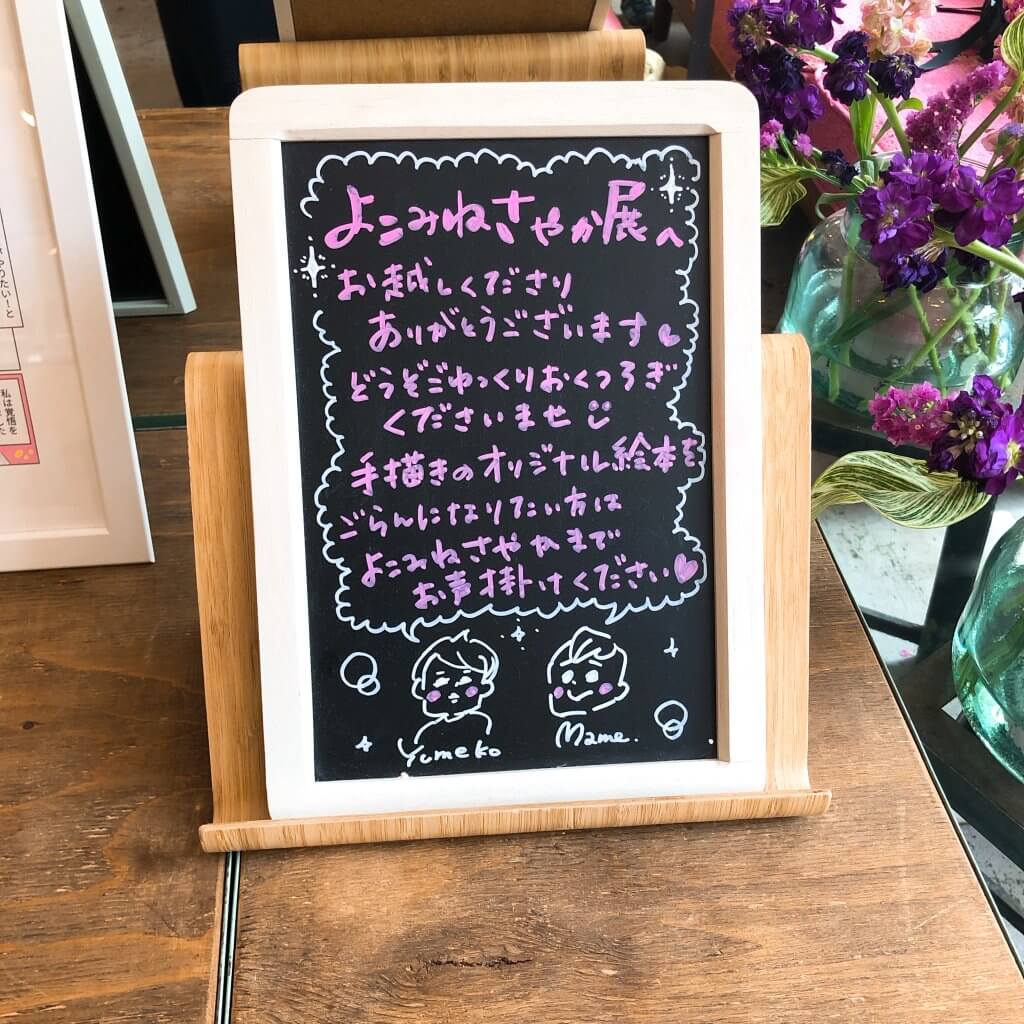 よこみねさやか展へ
お越しくださり
ありがとうございます
どうぞごゆっくりおくつろぎ
くださいませ
手描きのオリジナル絵本を
ごらんになりたい方は
よこみねさやかまで
お声掛けください
Yumeko
Mame.
やりたい!と
私は覚悟を